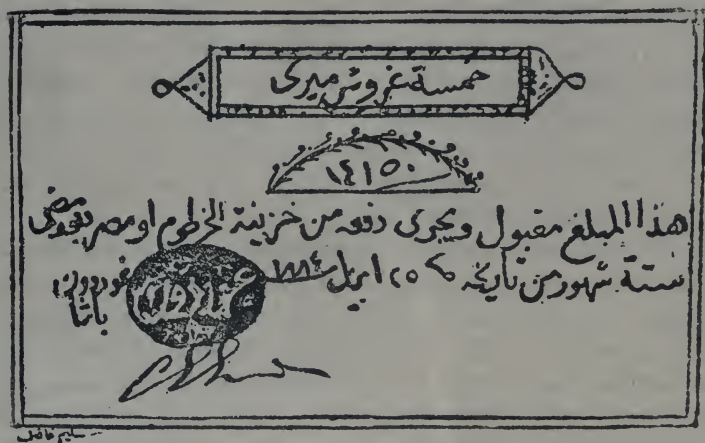 خمسة غروش ميرى
١٤١٥٠
هذا المبلغ مقبول ويجرى دفعه من خزينة الخرطوم او مصر بعد مضى
ستة شهور من تاريخه ٢٥ ابريل ١٨٨٤ غوردون
باشا
سليم فاضل